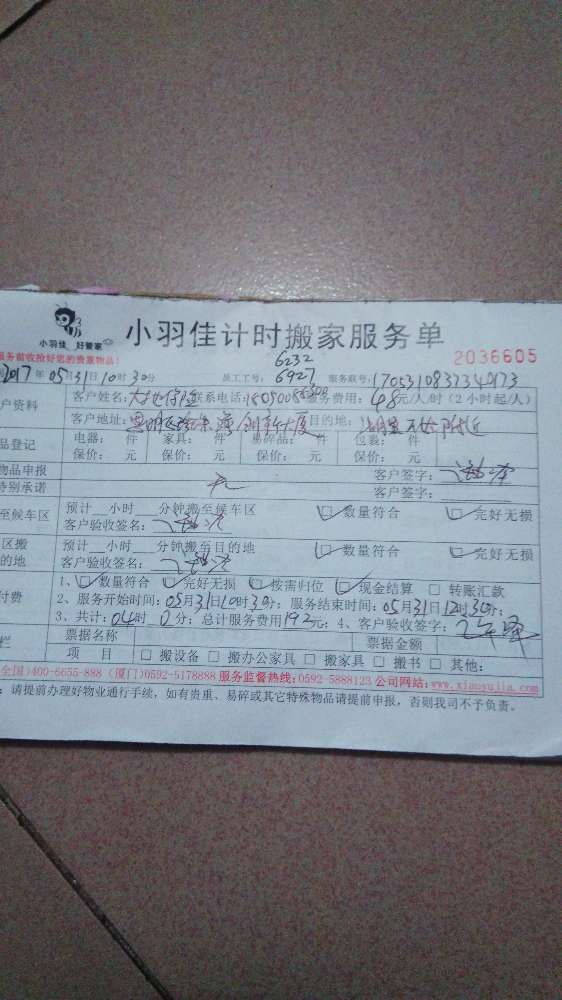 小羽佳 好管家
小羽佳计时搬家服务单
2036605
服务前收捡好您的贵重物品!
6232
2017年05月31日10时30分 员工工号: 6927 服务联号:
户资料 客户姓名: 大地保险 联系电话: 服务费用: 48元/人/时(2小时起/人)
客户地址: 创新大厦 目的地:
品登记 电器: 件 家具: 件 易碎品: 件 包装: 件
保价: 元 保价: 元 保价: 元 保价: 元
物品申报 客户签字:
特别承诺 无 客户签字:
至候车区 预计__小时___分钟搬至候车区 数量符合 完好无损
客户验收签名:
区搬 预计__小时___分钟搬至目的地 数量符合 完好无损
的地 客户验收签名:
1、数量符合 完好无损 按需归位 现金结算 转账汇款
付费 2、服务开始时间: 05月31日10时30分; 服务结束时间: 05月31日12时30分;
3、共计: 04时 0分; 总计服务费用192元; 4、客户验收签字:
栏 票据名称 票据金额
项 目 □ 搬设备 □ 搬办公家具 □ 搬家具 □ 搬书 □ 其他:
全国)400-6655-888 (厦门)0592-5178888 服务监督热线:0592-5888123 公司网站:www.xiaoyujia.com
: 请提前办理好物业通行手续，如有贵重、易碎或其它特殊物品请提前申报，否则我司不予负责。